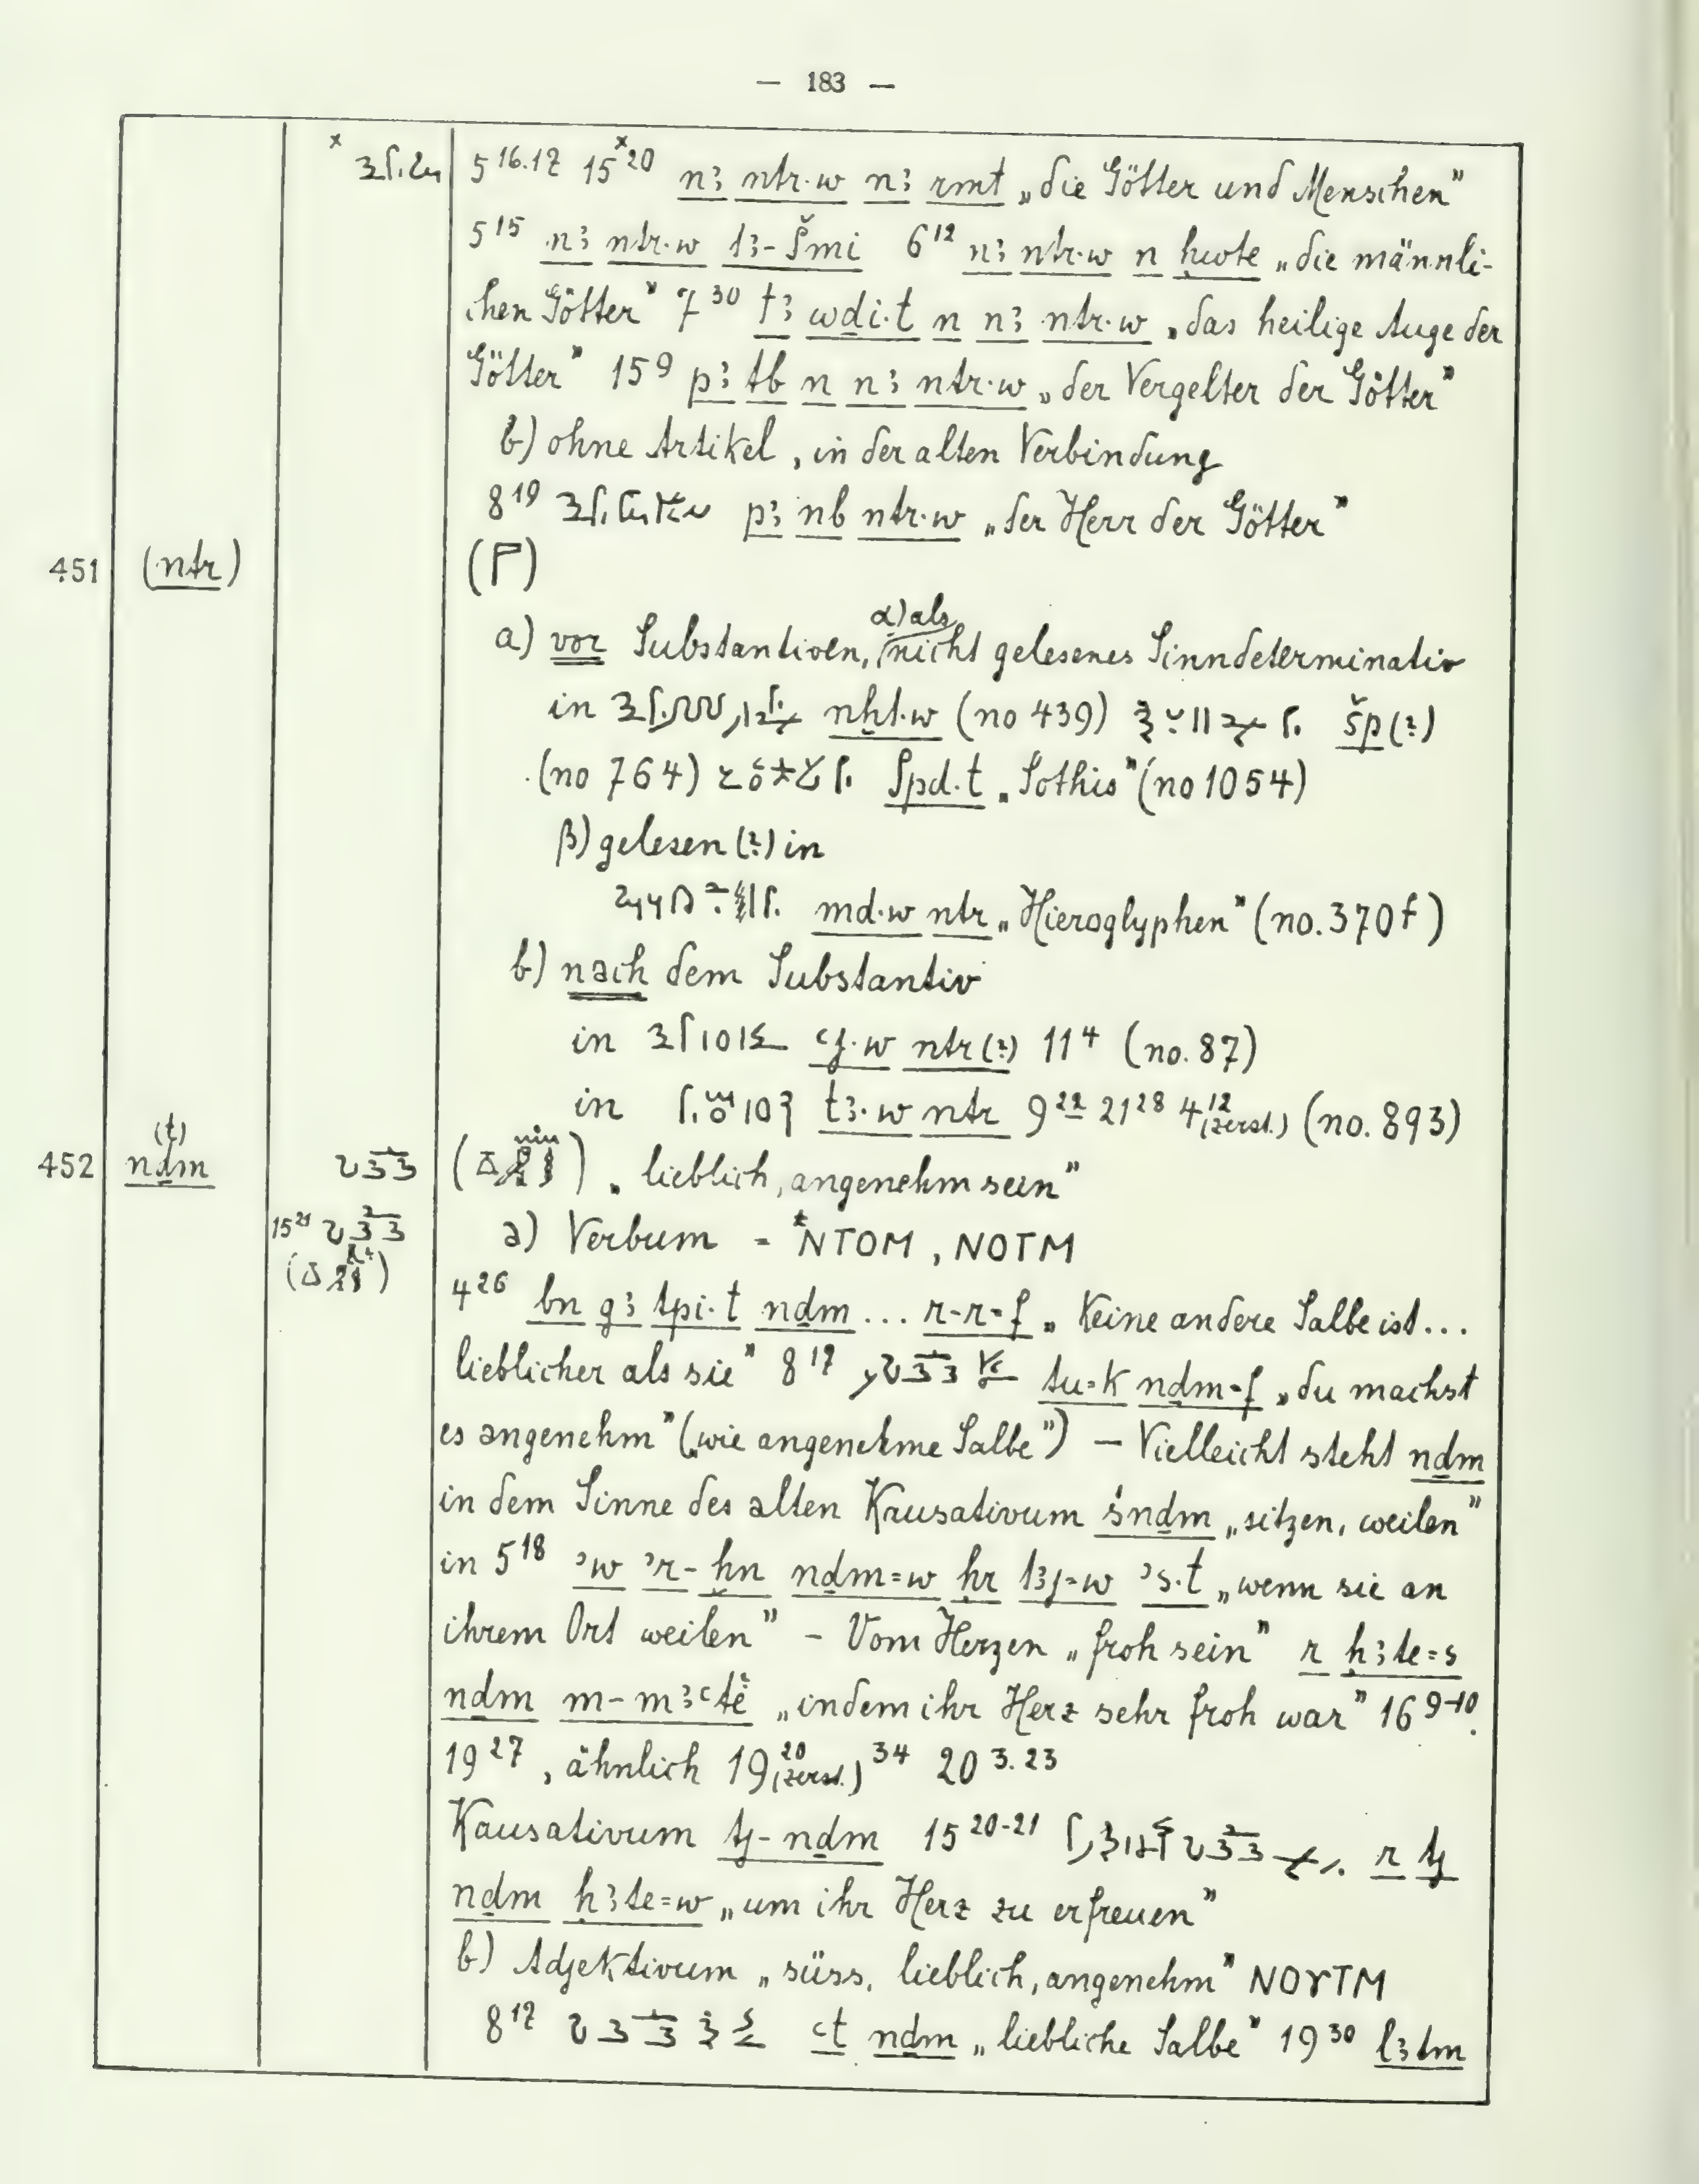 — 183 —
5 16.17 15 x20 nꜣ ntr.w nꜣ rmt „die Götter und Menschen"
5 15 nꜣ ntr.w tꜣ-šmꜥi 6 12 nꜣ ntr.w n ḥwote „die männli-
chen Götter" 7 30 tꜣ wḏi.t n nꜣ ntr.w „das heilige Auge der
Götter" 15 9 pꜣ tb n nꜣ ntr.w „der Vergelter der Götter"
b) ohne Artikel, in der alten Verbindung
8 19 pꜣ nb ntr.w „der Herr der Götter"
451 (ntr) (𓊹)
a) vor Substantiven, α) als nicht gelesenes Sinndeterminativ
in nḫt.w (no 439) šp (?)
(no 764) Spd.t „Sothis" (no 1054)
β) gelesen (?) in
md.w ntr „Hieroglyphen" (no. 370 f)
b) nach dem Substantiv
in ꜥj.w ntr (?) 11 4 (no. 87)
in tꜣ.w ntr 9 22 21 28 4 12 (zerst.) (no. 893)
452 nḏm (t) „lieblich, angenehm sein"
15 21
a) Verbum = *NTOM, NOTM
4 26 bn gꜣ tpi.t nḏm ... r-r=f „Keine andere Salbe ist ...
lieblicher als sie" 8 17 tu=k nḏm=f „du machst
es angenehm" („wie angenehme Salbe") — Vielleicht steht nḏm
in dem Sinne des alten Kausativum śnḏm „sitzen, weilen"
in 5 18 ꜣw ꜣr-ḥn nḏm=w ḥr tꜣj=w ꜣs.t „wenn sie an
ihrem Ort weilen" — Vom Herzen „froh sein" r ḥꜣte=s
nḏm m-mꜣꜥte „indem ihr Herz sehr froh war" 16 9-10.
19 27, ähnlich 19 20 (zerst.) 34 20 3.23
Kausativum tj-nḏm 15 20-21 r tj
nḏm ḥꜣte=w „um ihr Herz zu erfreuen"
b) Adjektivum „süss, lieblich, angenehm" NOYTM
8 17 ꜥt nḏm „liebliche Salbe" 19 30 lꜣtm